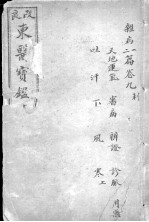 雜病二篇卷九 利
天地運氣 審病 辨證 診脈 用藥
吐 汗 下 風 寒上
改良
東醫寶鑑